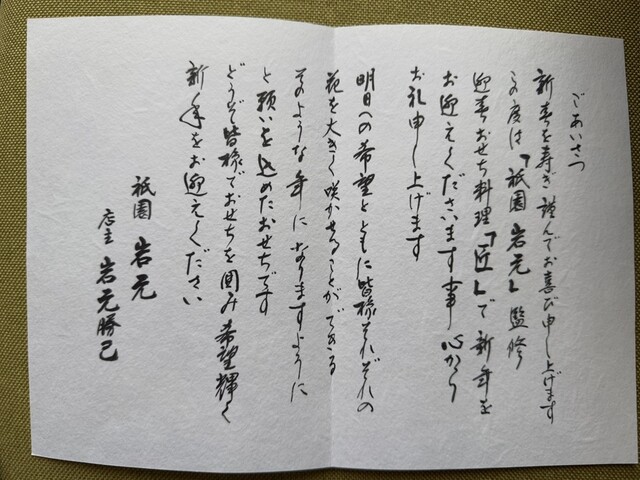 ごあいさつ
新春を寿ぎ謹んでお喜び申し上げます
この度は「祇園 岩元」監修
迎春おせち料理「匠」で新年を
お迎えくださいます事 心から
お礼申し上げます
明日への希望とともに皆様それぞれの
花を大きく咲かせることができる
そのような年になりますように
と願いを込めたおせちです
どうぞ皆様でおせちを囲み希望輝く
新年をお迎えください
祇園 岩元
店主 岩元勝己